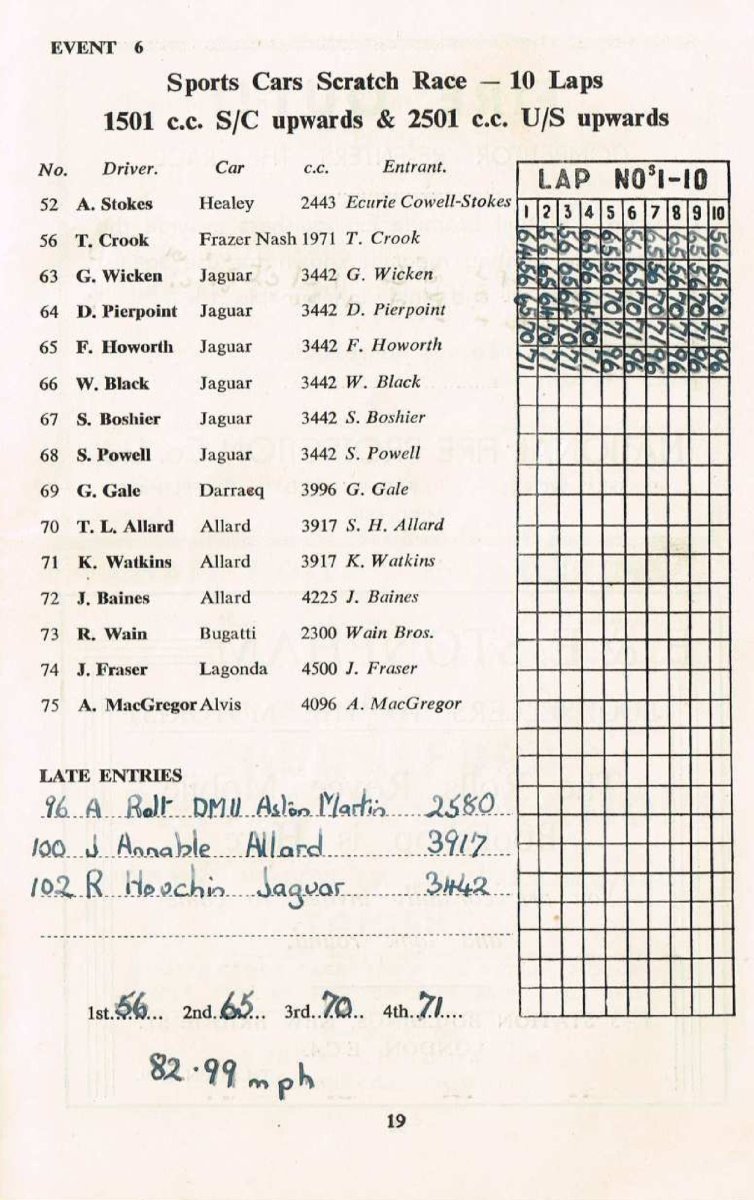 EVENT 6
Sports Cars Scratch Race — 10 Laps
1501 c.c. S/C upwards & 2501 c.c. U/S upwards
No. Driver. Car c.c. Entrant.
52 A. Stokes Healey 2443 Ecurie Cowell-Stokes
56 T. Crook Frazer Nash 1971 T. Crook
63 G. Wicken Jaguar 3442 G. Wicken
64 D. Pierpoint Jaguar 3442 D. Pierpoint
65 F. Howorth Jaguar 3442 F. Howorth
66 W. Black Jaguar 3442 W. Black
67 S. Boshier Jaguar 3442 S. Boshier
68 S. Powell Jaguar 3442 S. Powell
69 G. Gale Darracq 3996 G. Gale
70 T. L. Allard Allard 3917 S. H. Allard
71 K. Watkins Allard 3917 K. Watkins
72 J. Baines Allard 4225 J. Baines
73 R. Wain Bugatti 2300 Wain Bros.
74 J. Fraser Lagonda 4500 J. Fraser
75 A. MacGregor Alvis 4096 A. MacGregor
LAP NOS 1-10
1 2 3 4 5 6 7 8 9 10
64 56 56 65 65 56 65 65 65 56
56 65 65 56 56 65 56 56 56 65
65 64 64 64 70 70 70 70 70 70
70 70 70 70 71 71 71 71 71 71
71 71 71 71 96 96 96 96 96 96
LATE ENTRIES
96 A Rolt DMU Aston Martin 2580
100 J Annable Allard 3917
102 R Houchin Jaguar 3442
1st. 56 2nd. 65 3rd. 70 4th. 71
82.99 mph
19